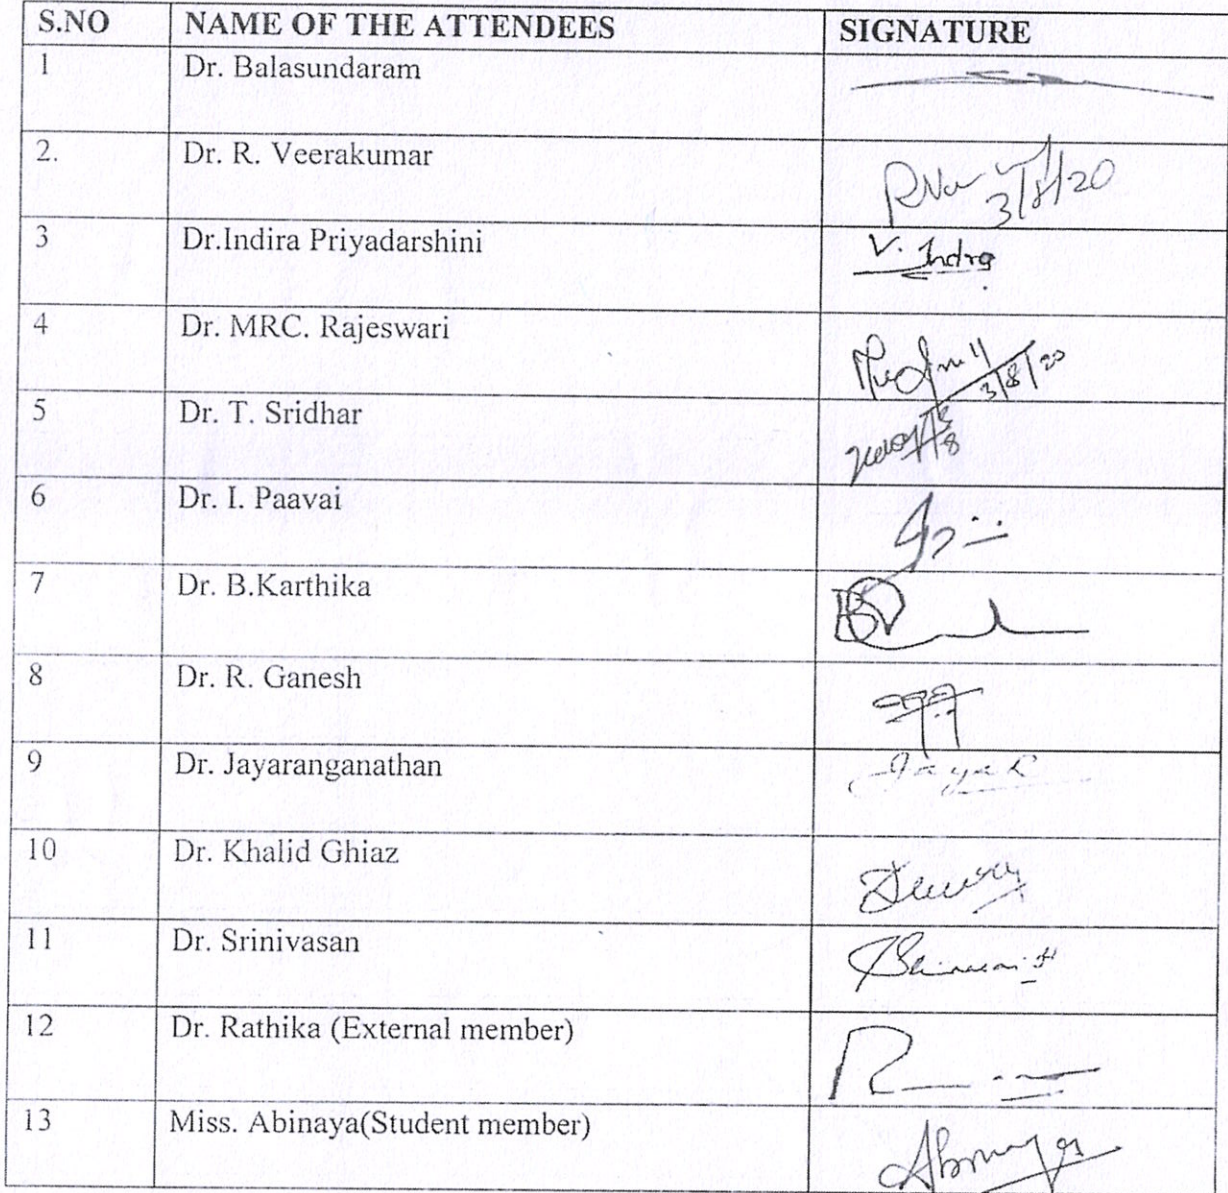 S.NO NAME OF THE ATTENDEES SIGNATURE
1 Dr. Balasundaram
2. Dr. R. Veerakumar 3/8/20
3 Dr.Indira Priyadarshini V. Indra
4 Dr. MRC. Rajeswari 3/8/20
5 Dr. T. Sridhar 3/8
6 Dr. I. Paavai
7 Dr. B.Karthika
8 Dr. R. Ganesh
9 Dr. Jayaranganathan
10 Dr. Khalid Ghiaz
11 Dr. Srinivasan
12 Dr. Rathika (External member)
13 Miss. Abinaya(Student member)